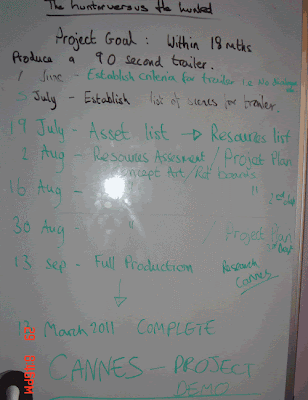 The hunter versus the hunted
Project Goal : Within 18 mths
Produce a 90 second trailer.
June - Establish criteria for trailer
5 July - Establish list of scenes for trailer
19 July - Asset list → Resources list
2 Aug - Resources Assesment / Project Plan
Concept Art / Ref boards
16 Aug - " "
30 Aug - " Project Plan
13 Sep - Full Production Research
Cannes
March 2011 COMPLETE
CANNES - PROJECT
DEMO